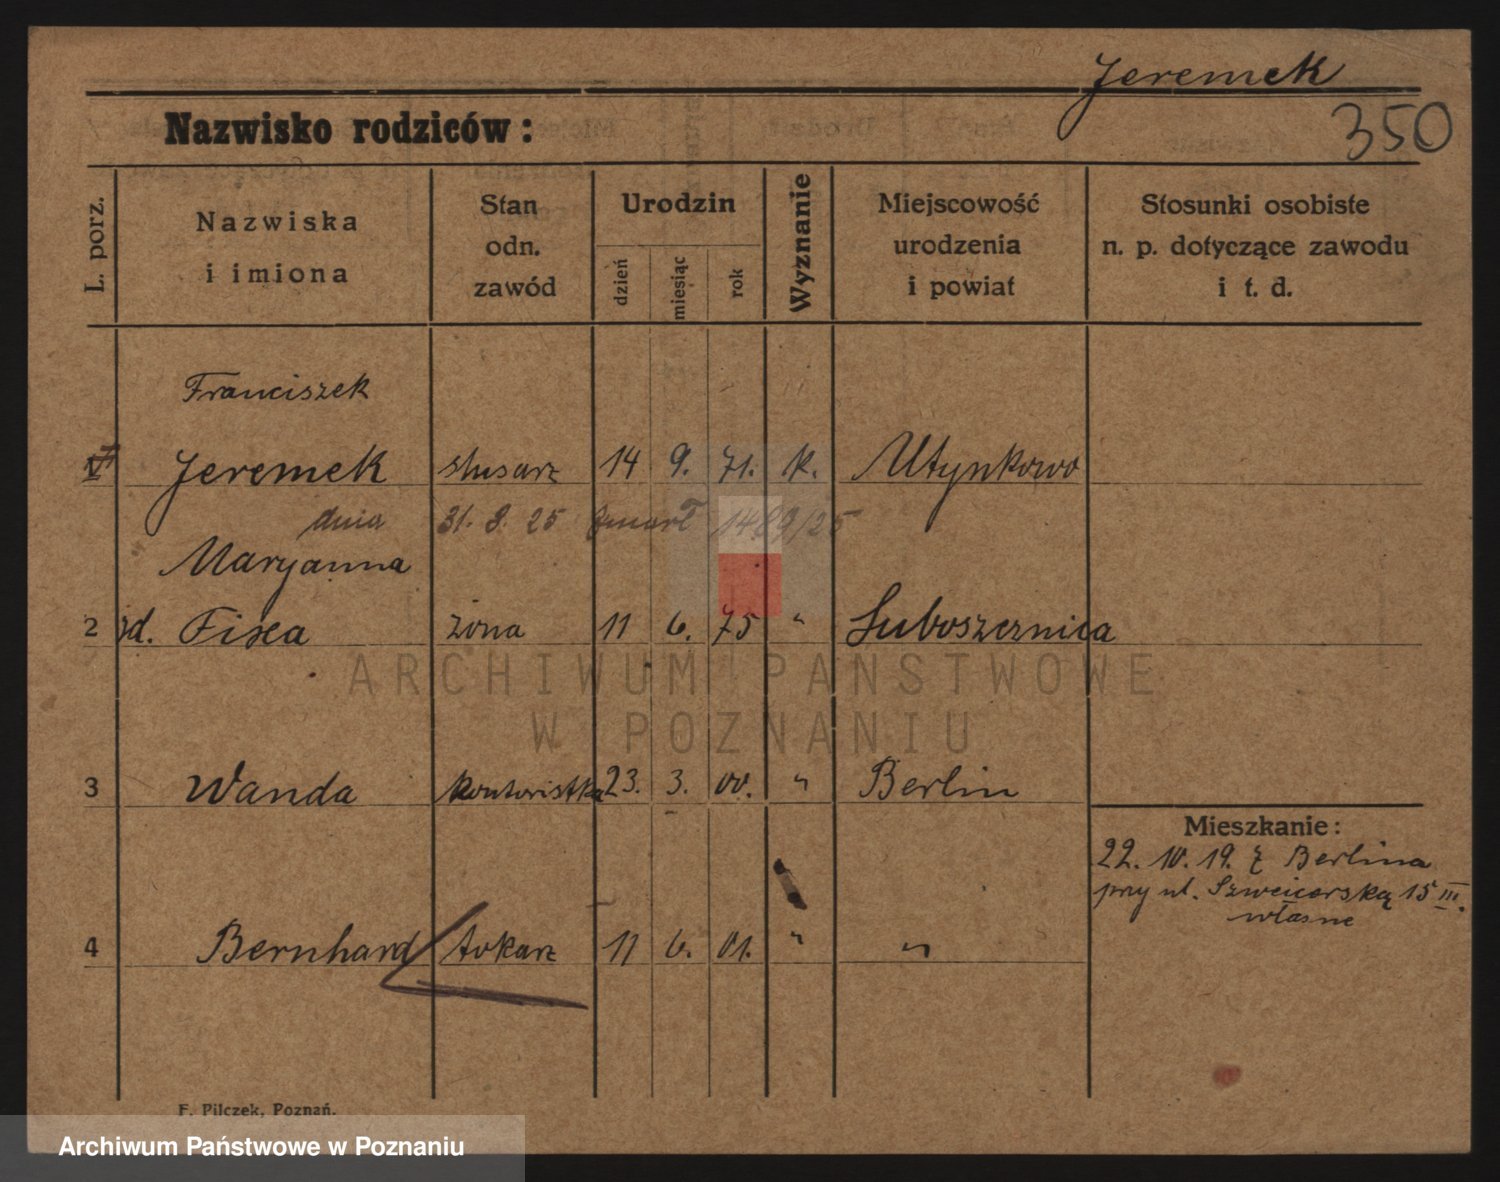 Jeremek
350
Nazwisko rodziców:
L. porz.
Nazwiska
i imiona
Stan
odn.
zawód
Urodzin
dzień
miesiąc
rok
Wyznanie
Miejscowość
urodzenia
i powiat
Stosunki osobiste
n. p. dotyczące zawodu
i t. d.
Franciszek
Jeremek ślusarz 14 9. 71. k.
dnia 31. 8. 25 zmarł 1489/25
Maryanna
2 zd. żona 11 6. 75 " Luboszeznica
3 Wanda kontoristka 23. 3. 00. " Berlin
Mieszkanie:
22. 10. 19. z Berlina
przy ul. Szweicarską 15 III.
własne
4 Bernhard tokarz 11 6. 01. " "
F. Pilczek, Poznań.
ARCHIWUM PAŃSTWOWE
W POZNANIU
Archiwum Państwowe w Poznaniu